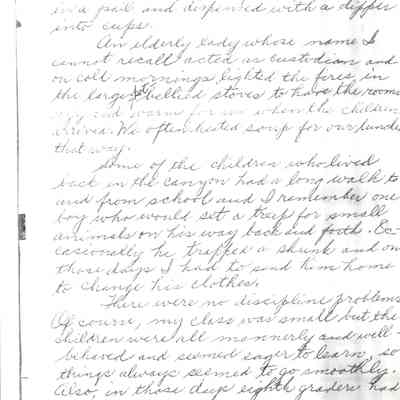 in a pail and dispensed with a dipper
into cups.
An elderly lady whose name I
cannot recall acted as custodian and
on cold mornings lighted the fires in
the large pot bellied stoves to have the rooms
and warm for us when the children
arrived. We often heated soup for our lunch
that way.
Some of the children who lived
back in the canyon had a long walk to
and from school and I remember one
boy who would set a trap for small
animals on his way back and forth. Oc-
casionally he trapped a skunk and on
those days I had to send him home
to change his clothes.
There were no discipline problems
Of course, my class was small but the
children were all mannerly and well-
behaved and seemed eager to learn, so
things always seemed to go smoothly.
Also, in those days eighth graders had